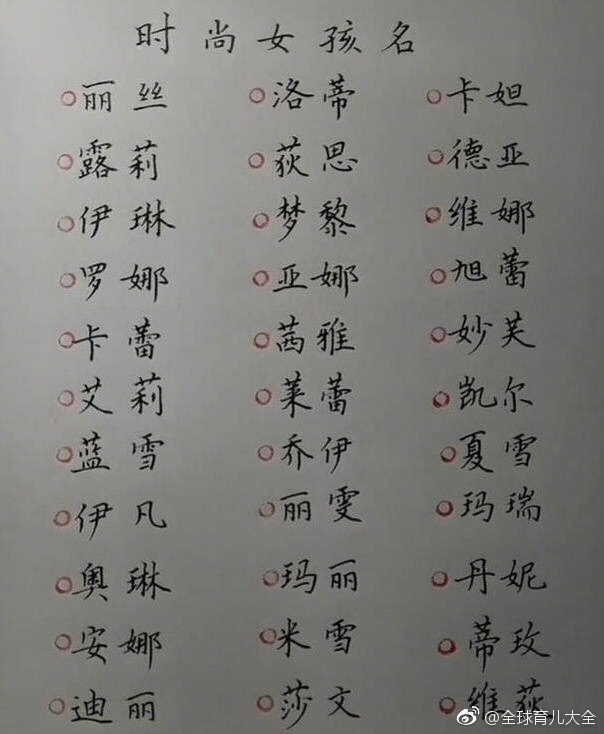 时尚女孩名
○丽丝 ○洛蒂 ○卡妲
○露莉 ○荻思 ○德亚
○伊琳 ○梦黎 ○维娜
○罗娜 ○亚娜 ○旭蕾
○卡蕾 ○茜雅 ○妙芙
○艾莉 ○莱蕾 ○凯尔
○蓝雪 ○乔伊 ○夏雪
○伊凡 ○丽雯 ○玛瑞
○奥琳 ○玛丽 ○丹妮
○安娜 ○米雪 ○蒂玫
○迪丽 ○莎文 ○维荻
@全球育儿大全